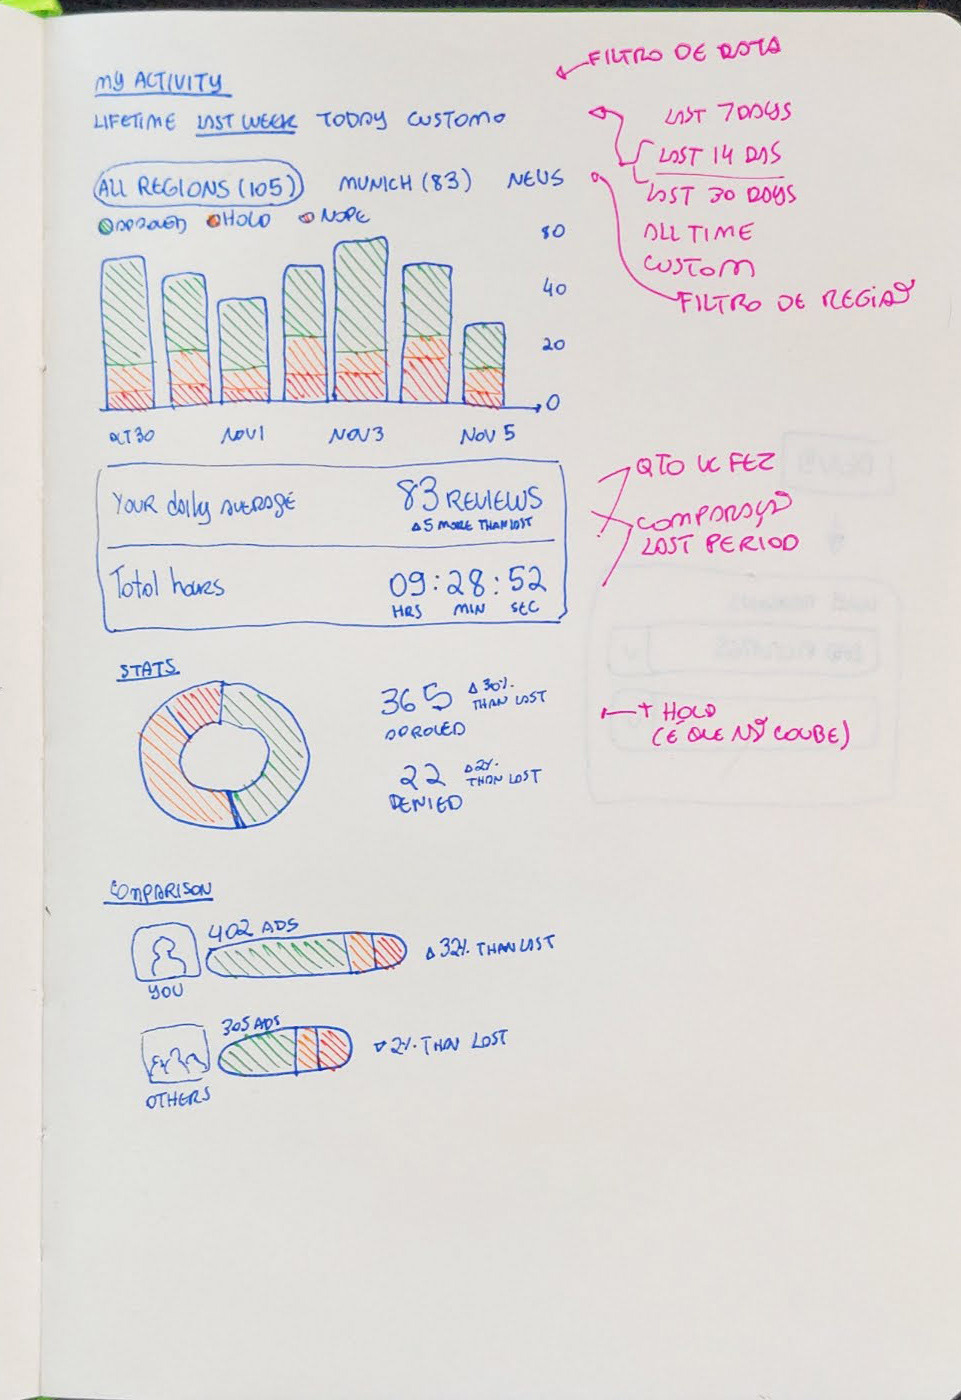 MY ACTIVITY
LIFETIME LAST WEEK TODAY CUSTOMO
ALL REGIONS (105) MUNICH (83) NEUS
APPROVED HOLD NOPE
80
40
20
0
OCT 30 NOV 1 NOV 3 NOV 5
YOUR daily AVERAGE 83 REVIEWS
Δ5 MORE THAN LAST
Total hours 09:28:52
HRS MIN SEC
STATS
365 Δ 30% THAN LAST
APPROVED
22 Δ2% THAN LAST
DENIED
COMPARISON
402 ADS
YOU
Δ 32% THAN LAST
305 ADS
OTHERS
▽ 2% THAN LAST
FILTRO DE DATA
LAST 7 DAYS
LAST 14 DAS
LAST 30 DAYS
ALL TIME
CUSTOM
FILTRO DE REGIAO
QTO VC FEZ
COMPARAÇÃO
LAST PERIOD
+ HOLD
(É QUE NÃO COUBE)